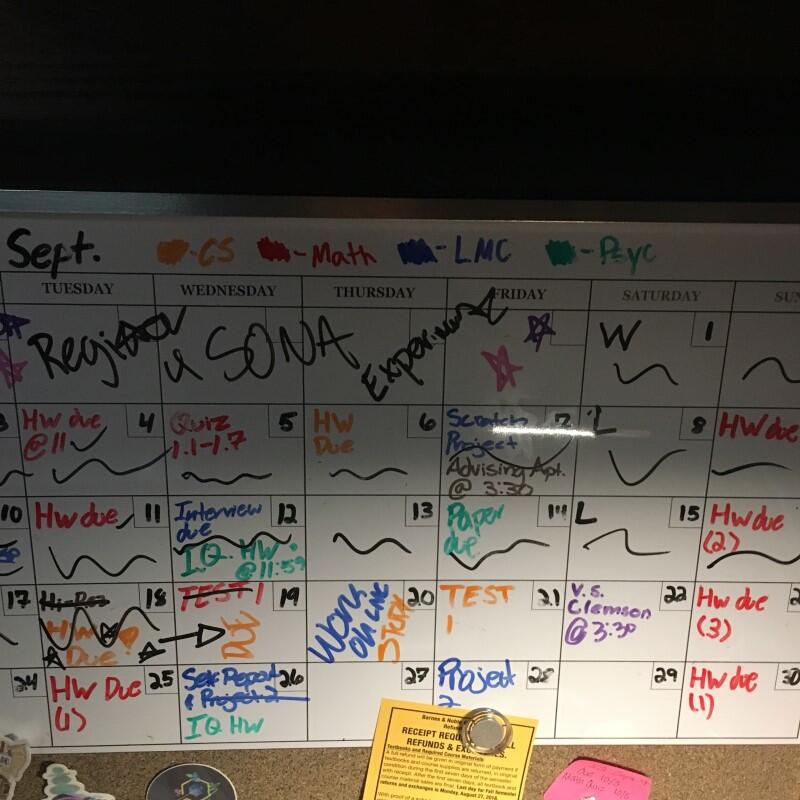 Sept. -CS -Math -LMC -Psyc
TUESDAY WEDNESDAY THURSDAY FRIDAY SATURDAY SUN
Register 4 SONA Experiment
W 1
3
HW due 4
@ 11
Quiz 5
1.1-1.7
HW 6
Due
Scratch 7
Project
Advising Apt.
@ 3:30
L 8
HW due
10
HW due 11
Interview 12
due
IQ HW
@ 11:59
13
Paper 14
due
L 15
HW due
(2)
17
18
HW
Due
TEST 1 19
DUE
Work 20
on Live
Story
TEST 21
1
V.S. 22
Clemson
@ 3:30
HW due 2
(3)
24
HW Due 25
(1)
Self Report 26
& Project 2
IQ HW
27
Project 28
2
29
HW due 30
(1)
Barnes & Noble
RECEIPT REQU
REFUNDS & EX
Textbooks and Required Course Materials
A full refund will be given in original form of payment if
textbooks and course supplies are returned, in original
condition during the first seven days of the semester
with receipt. After the first seven days, all textbook and
course material sales are final. Last day for Fall Semester
refunds and exchanges is Monday, August 27, 2018.
With proof of a
Math Quiz